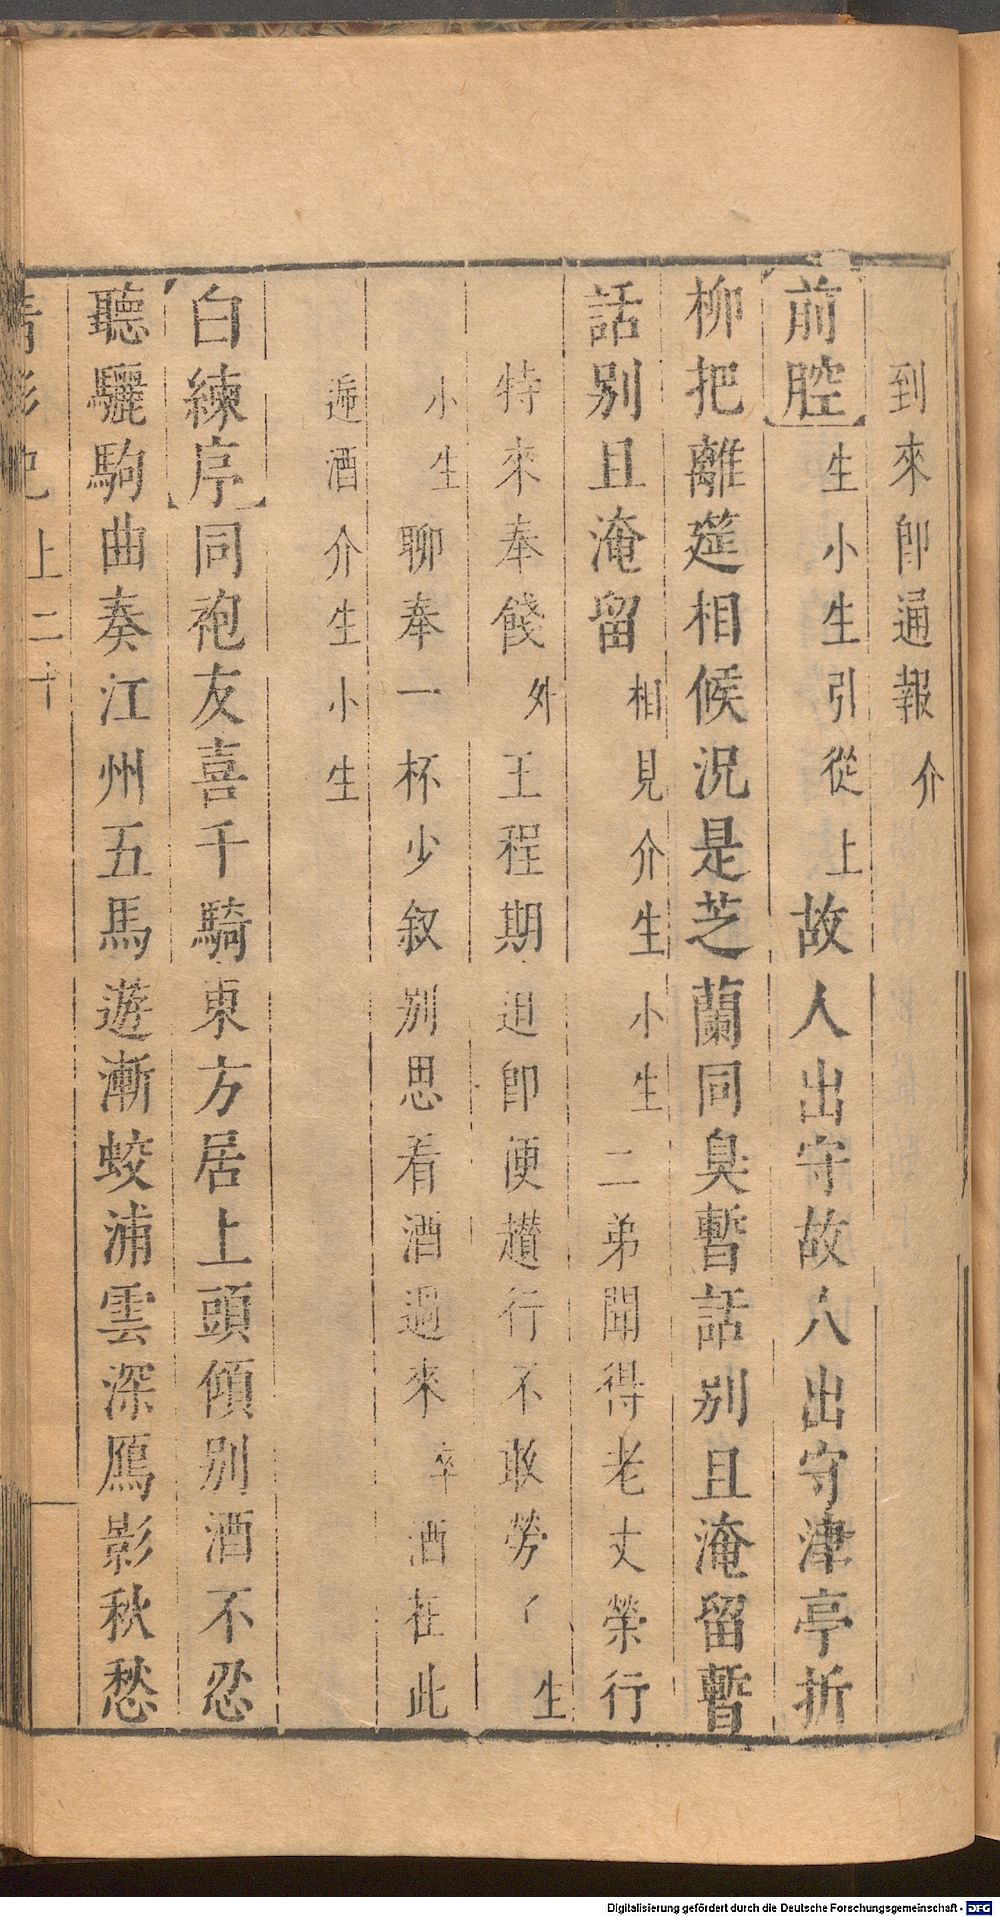 到來卽通報介
前腔生小生引從上故人出守故人出守津亭折
柳把離筵相候況是芝蘭同臭暫話別且淹留暫
話別且淹留相見介生小生二弟聞得老丈榮行
特來奉餞外王程期迫卽便趲行不敢勞了生
小生聊奉一杯少叙別思看酒過來卒酒在此
遞酒介生小生
白練序同袍友喜千騎東方居上頭傾別酒不忍
聽驪駒曲奏江州五馬遊漸蛟浦雲深鴈影秋愁
上二十
Digitalisierung gefördert durch die Deutsche Forschungsgemeinschaft - DFG